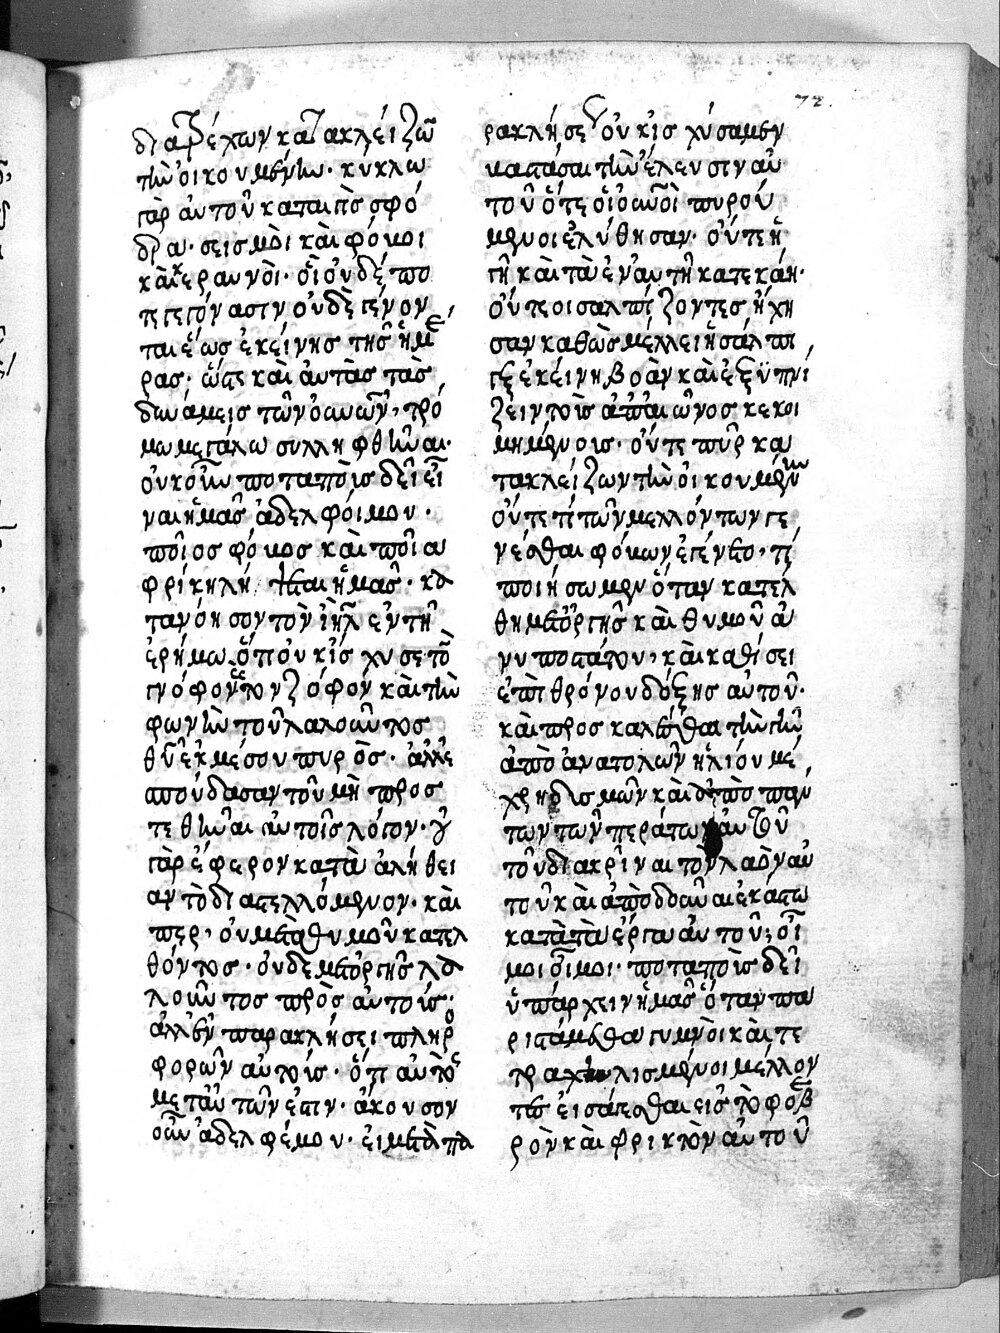 72.
διατρέχων κατακλείζων
τὴν οἰκουμένην· κύκλω
γὰρ αὐτοῦ καταιγὶς σφό
δρα· σεισμοὶ καὶ φόνοι
καὶ κεραυνοὶ· οἳ οὐδέπο
τε γεγόνασιν οὐδὲ γένον
ται ἕως ἐκείνης τῆς ἡμέ
ρας· ὥστε καὶ αὐτὰς τὰς
δυνάμεις τῶν οὐνῶν, τρό
μω μεγάλω συλληφθῆναι·
οὐκοῦν ποταποὺς δεῖ εἶ
ναι ἡμᾶς ἀδελφοί μου·
ποῖος φόνος καὶ ποῖα
φρίκη λήψεται ἡμᾶς· κα
τανόησον τὸν ἰηλ ἐν τῆ
ἐρήμω, ὅτι οὐκ ἴσχυσε τὸν
γνόφον καὶ τὸν ζόφον καὶ τὴν
φωνὴν τοῦ λαλοῦντος
θυ ἐκ μέσου πυρός· ἀλλ' ἐ
σπούδασαν τοῦ μὴ προς
τεθῆναι αὐτοῖς λόγον· οὐ
γὰρ ἔφερον κατὰ ἀλήθει
αν τὸ διαστελλόμενον· καὶ
περ, οὐ μετὰ θυμοῦ κατελ
θόντος· οὐδὲ μετὰ ὀργῆς λα
λοῦντος πρὸς αὐτούς·
ἀλλ' ἐν παρακλήσει πληρο
φορῶν αὐτούς· ὅτι αὐτὸς
μετ' αὐτῶν ἐστιν· ἄκουσον
οὖν ἀδελφέ μου· εἰ μετὰ πα
ρακλήσεως οὐκ ἴσχυσαμεν
βαστάσαι τὴν ἔλευσιν αὐ
τοῦ ὅτε οἱ οὐνοὶ πυρού
μενοι ἐλύθησαν· οὔτε ἡ
γῆ καὶ τὰ ἐν αὐτῆ κατεκάη·
οὔτε οἱ σαλπίζοντες ἤχη
σαν καθὼς μέλλει ἡ σάλπι
γξ ἐκείνη βοᾶν καὶ ἐξυπνί
ζειν τοὺς ἀπ' αἰῶνος κεκοι
μημένους· οὔτε πῦρ κα
τακλείζων τὴν οἰκουμένην
οὔτε τι τῶν μελλόντων γε
νέσθαι φόνων ἐγένετο, τί
ποιήσωμεν ὅταν κατέλ
θη μετὰ ὀργῆς καὶ θυμοῦ ἀ
νυποστάτου, καὶ καθίσει
ἐπὶ θρόνου δόξης αὐτοῦ·
καὶ προσκαλέσηται τὴν γῆν
ἀπὸ ἀνατολῶν ἡλίου μέ
χρι δυσμῶν καὶ ἀπὸ πάν
των τῶν περάτων αὐτῆς
τοῦ διακρῖναι τὸν λαὸν αὐ
τοῦ καὶ ἀποδοῦναι ἑκάστω
κατὰ τὰ ἔργα αὐτοῦ· οἴ
μοι οἴμοι· ποταποὺς δεῖ
ὑπάρχειν ἡμᾶς ὅταν πα
ριστάμεθα γυμνοὶ καὶ τε
τραχηλισμένοι μέλλον
τες εἰσάγεσθαι εἰς τὸ φοβε
ρὸν καὶ φρικτὸν αὐτοῦ